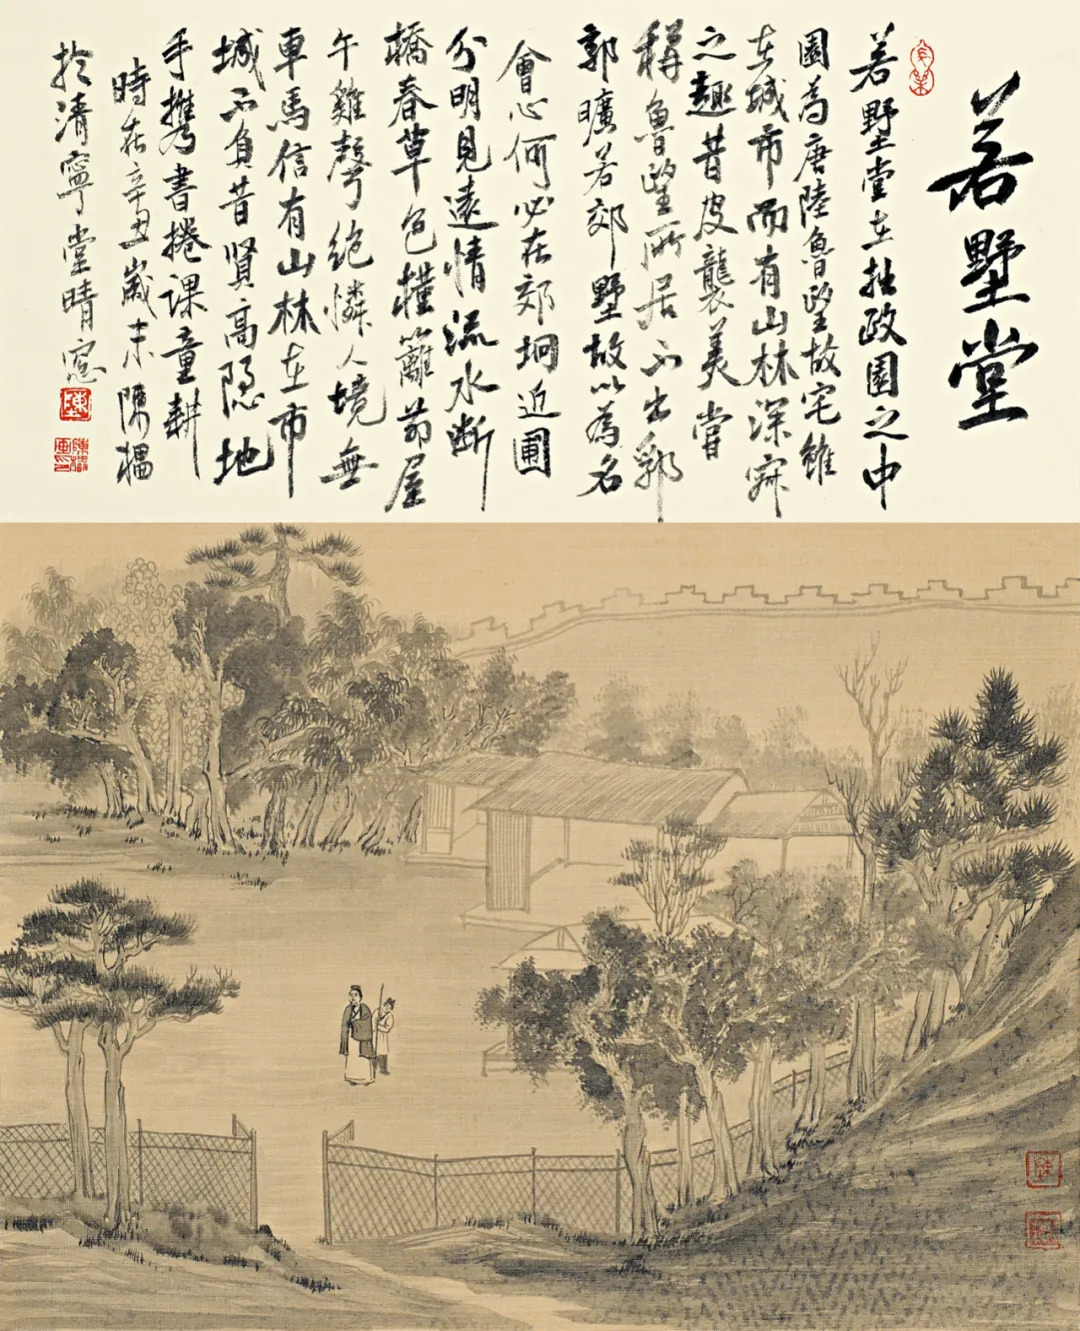 若墅堂
若墅堂在拙政園之中
園為唐陸魯望故宅雖
在城市而有山林深寂
之趣昔皮襲美嘗
稱魯望所居不出郛
郭曠若郊墅故以為名
會心何必在郊坰近圃
分明見遠情流水斷
橋春草色槿籬茆屋
午雞聲絕憐人境無
車馬信有山林在市
城不負昔賢高隱地
手攜書捲課童耕
時在辛丑歲末陳
於清寧堂晴窓